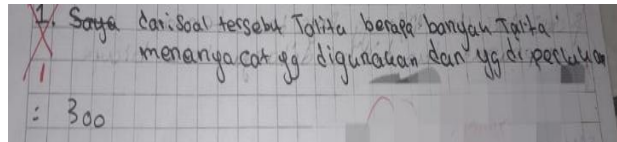 1. Saya dari soal tersebut Talita berapa banyak Talita
menanya cat yg digunakan dan yg di perlukan
: 300